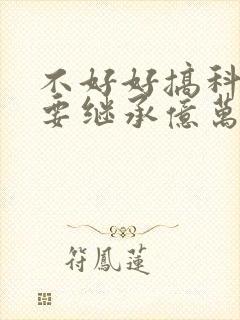 不好好搞科
要继承億萬
符鳳蓮